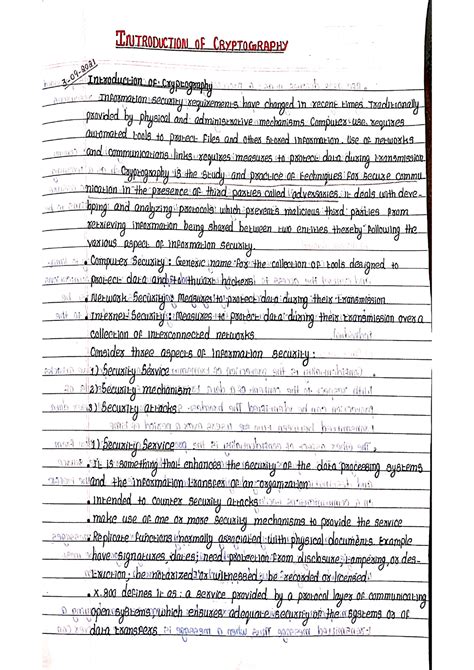 INTRODUCTION OF CRYPTOGRAPHY
2-09-2021
Introduction of Cryptography
Information security requirements have changed in recent times Traditionally
provided by physical and administrative mechanisms Computer use requires
automated tools to protect files and other stored information. Use of networks
and communications links requires measures to protect data during transmission
Cryptography is the study and practice of techniques for secure commu-
nication in the presence of third parties called adversaries. it deals with deve-
loping and analyzing protocols which prevents malicious third parties from
retrieving information being shared between two entities thereby following the
various aspect of information security.
• Computer Security: Generic name for the collection of tools designed to
protect data and to thwart hackers
• Network Security: Measures to protect data during their transmission
• Internet Security: Measures to protect data during their transmission over a
collection of interconnected networks
Consider three aspects of information security:
1) Security Service
2) Security mechanism
3) Security attacks
1) Security Service
• It is something that enhances the security of the data processing systems
and the information transfer of an organization
• Intended to counter security attacks
• make use of one or more security mechanisms to provide the service
• Replicate functions normally associated with physical documents Example
have signatures, dates; need protection from disclosure, tampering, or des-
truction; be notarized or witnessed; be recorded or licensed
• X.800 defines it as: a service provided by a protocol layer of communicating
open systems, which ensures adequate security of the systems or of
data transfers